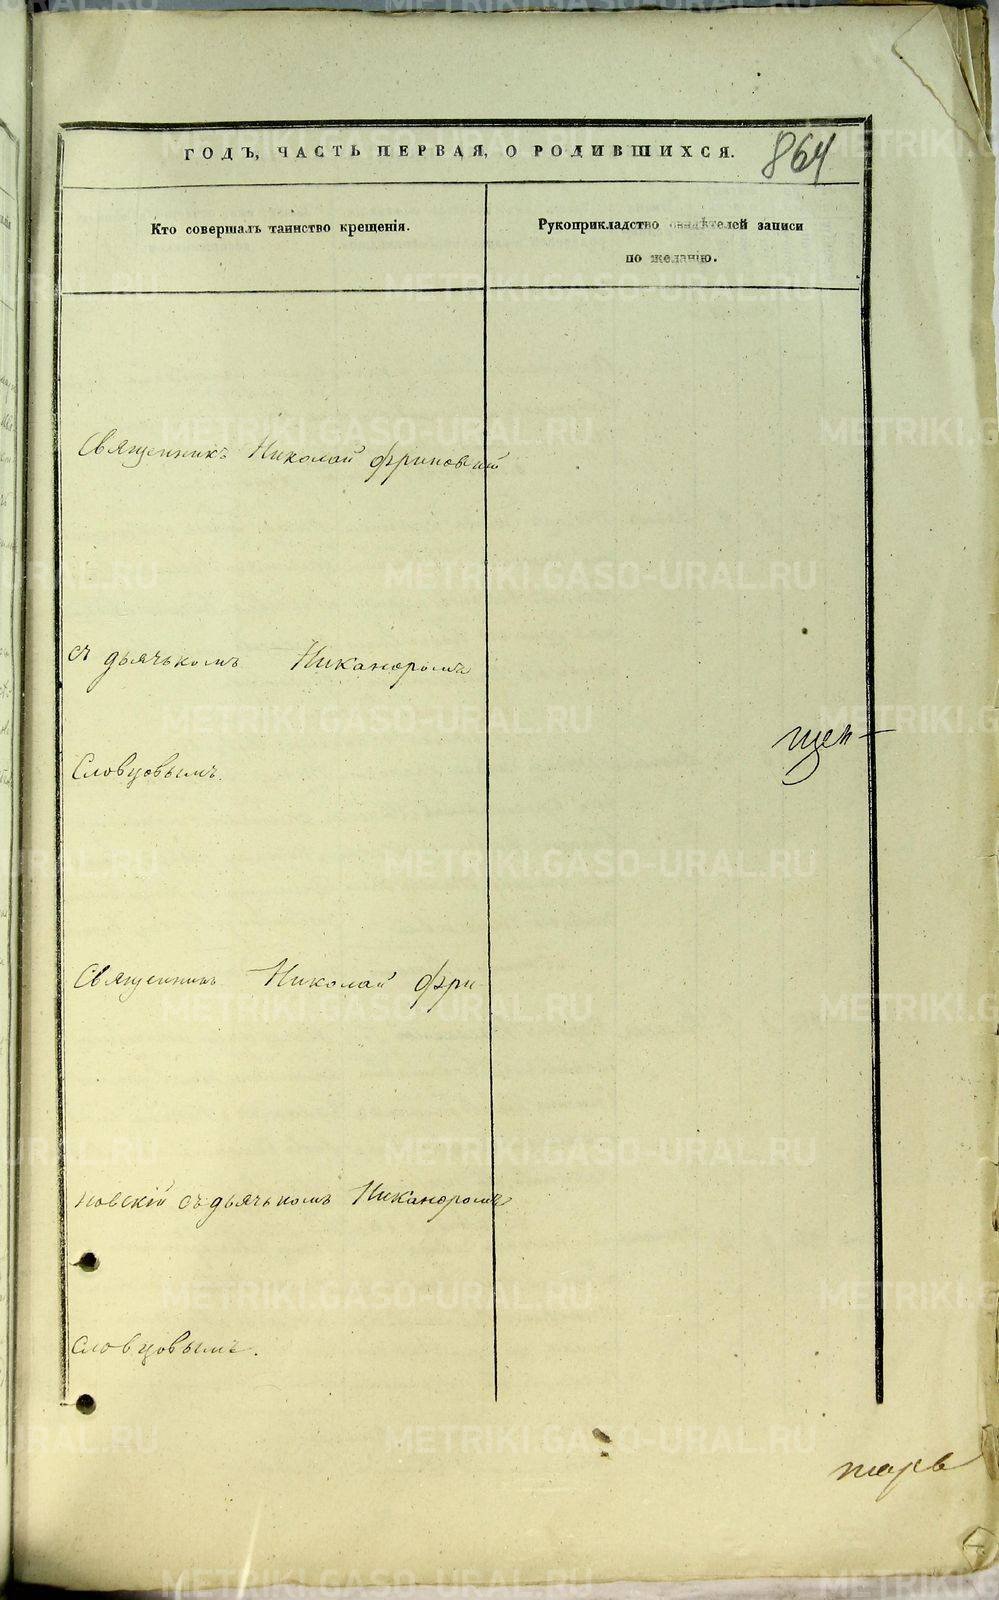 ГОДЪ, ЧАСТЬ ПЕРВАЯ, О РОДИВШИХСЯ.
864
Кто совершалъ таинство крещенія.
Рукоприкладство свидѣтелей записи
по желанію.
Священникъ Николай Фриновскій
съ дьячькомъ Никаноромъ
Словцовымъ.
щен-
Священникъ Николай Фри
новскій съ дьячькомъ Никаноромъ
Словцовымъ.
тарь
METRIKI.GASO-URAL.RU